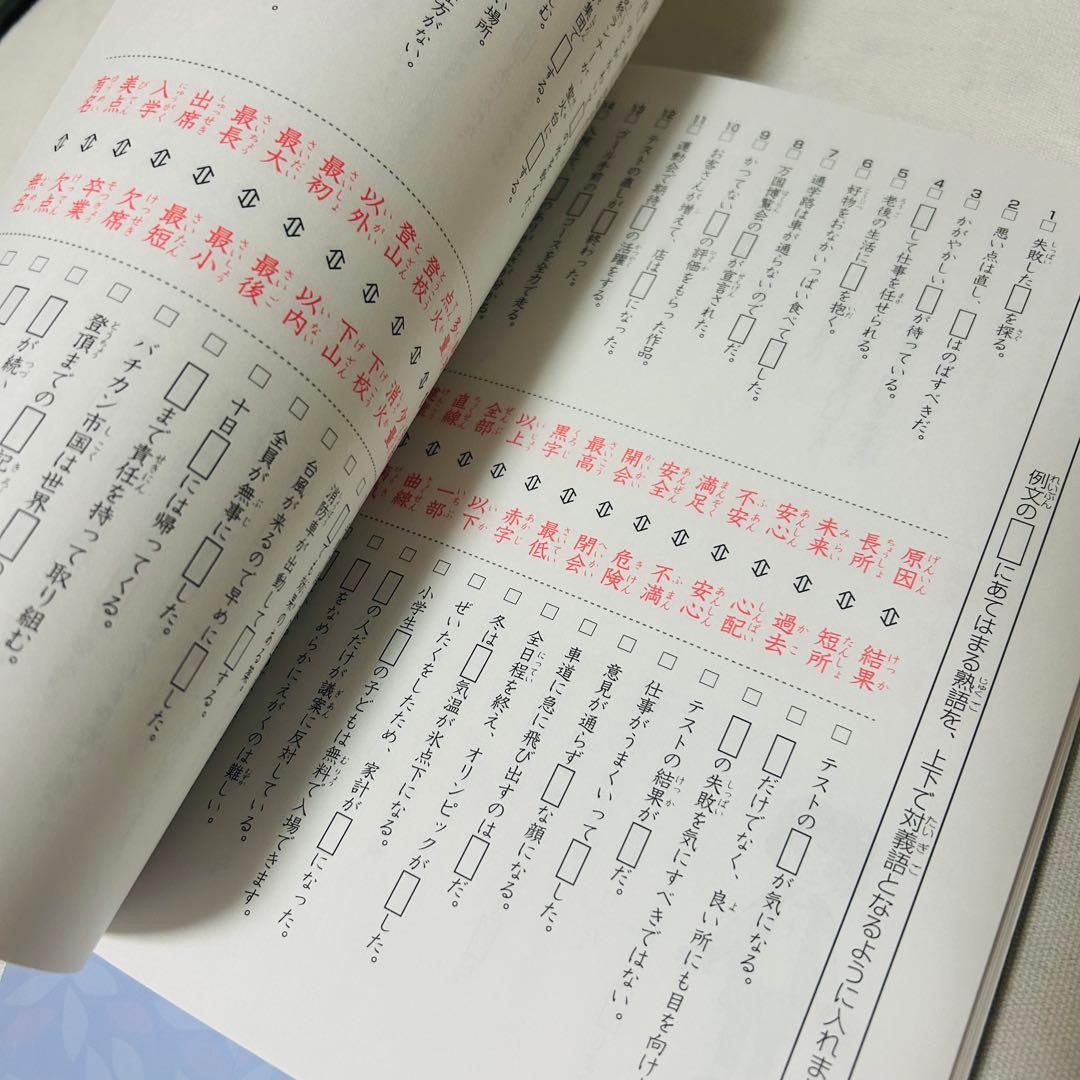 例文の□にあてはまる熟語を、上下で対義語となるように入れま
1 失敗した□を探る。
2 悪い点は直し、□はのばすべきだ。
3 かがやかしい□が待っている。
4 □して仕事を任せられる。
5 老後の生活に□を抱く。
6 好物をおなかいっぱい食べて□した。
7 通学路は車が通らないので□だ。
8 万国博覧会の□が宣言された。
9 かつてない□の評価をもらった作品。
10 お客さんが増えて、店は□になった。
11 運動会で期待□の活躍をする。
12 テストの直しが□終わった。
原因 ⇔ 結果
長所 ⇔ 短所
未来 ⇔ 過去
安心 ⇔ 心配
不安 ⇔ 安心
満足 ⇔ 不満
安全 ⇔ 危険
開会 ⇔ 閉会
最高 ⇔ 最低
黒字 ⇔ 赤字
以上 ⇔ 以下
全部 ⇔ 一部
直線 ⇔ 曲線
テストの□が気になる。
□だけでなく、良い所にも目を向け
□の失敗を気にすべきではない。
テストの結果が□だ。
仕事がうまくいって□した。
意見が通らず□な顔になる。
車道に急に飛び出すのは□だ。
全日程を終え、オリンピックが□した。
冬は□気温が氷点下になる。
ぜいたくをしたため、家計が□になった。
小学生□の子どもは無料で入場できます。
□の人だけが議案に反対している。
□をなめらかにえがくのは難しい。
い場所。
仕方がない。
登校 ⇔ 下校
登山 ⇔ 下山
以外 ⇔ 以内
最初 ⇔ 最後
最大 ⇔ 最小
最長 ⇔ 最短
出席 ⇔ 欠席
入学 ⇔ 卒業
美点 ⇔ 欠点
有名 ⇔ 無名
台風が来るので早めに□する。
全員が無事に□した。
十日□には帰ってくる。
□まで責任を持って取り組む。
バチカン市国は世界
登頂までの